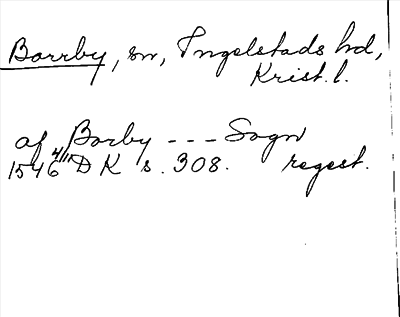 Borrby, sn, Ingelstads hd,
Krist. l.
af Borby --- Sogn
1546 4/11 DK s. 308. regest.